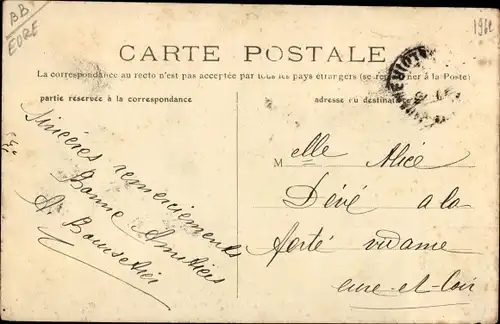 BB
EURE
196
CARTE POSTALE
La correspondance au recto n'est pas acceptée par tous les pays étrangers (se renseigner à la Poste)
partie réservée à la correspondance
adresse du destinataire
Sincères remerciements
Bonne Amitiés
A.
Melle Alice
Dévé a la
ferté vidame
eure-et-loir